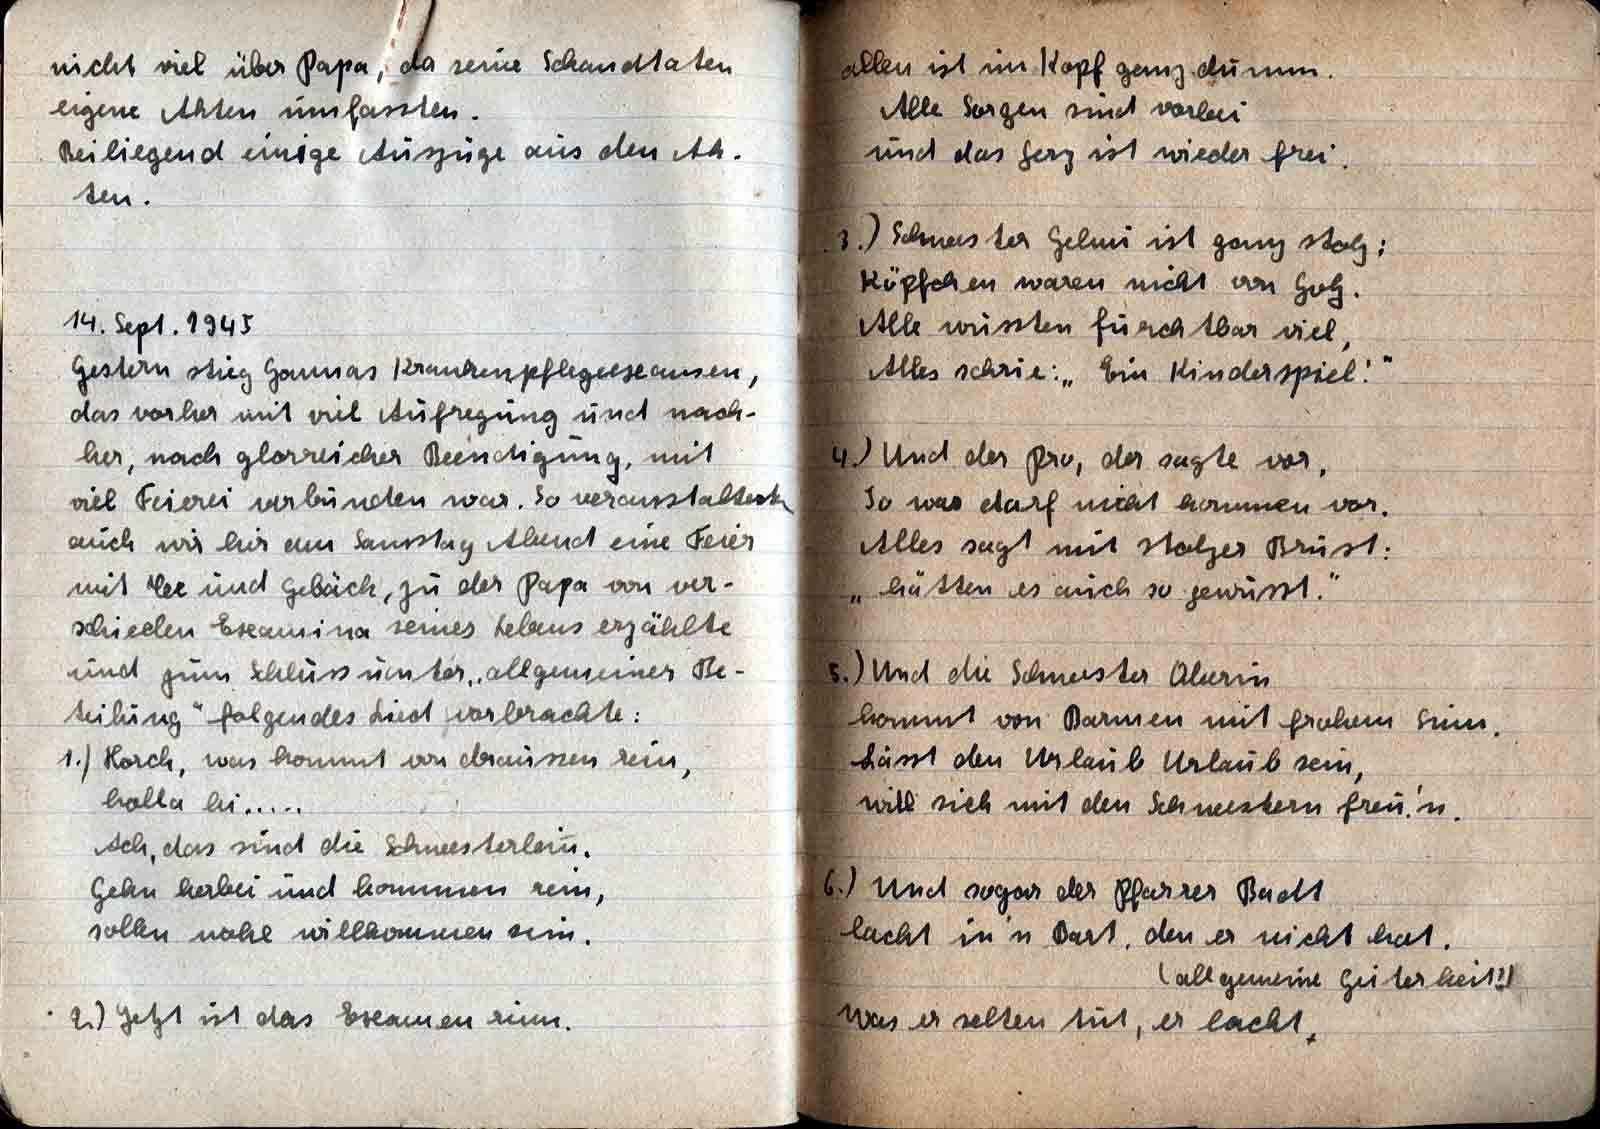 nicht viel über Papa, da seine Schandtaten
eigene Akten umfassten.
Beiliegend einige Auszüge aus den Ak-
ten.
14. Sept. 1945
Gestern stieg Hannas Krankenpflegeexamen,
das vorher mit viel Aufregung und nach-
her, nach glorreicher Beendigung, mit
viel Feierei verbunden war. So veranstalteten
auch wir hier am Samstag Abend eine Feier
mit Tee und Gebäck, zu der Papa von ver-
schieden Examina seines Lebens erzählte
und zum Schluss unter „allgemeiner Be-
teilung" folgendes Lied vorbrachte:
1.) Horch, was kommt von draussen rein,
holla hi.....
Ach, das sind die Schwesterlein.
Gehn herbei und kommen rein,
solln wohl willkommen sein.
2.) Jetzt ist das Examen rum.
allen ist im Kopf ganz dumm.
Alle Sorgen sind vorbei
und das Herz ist wieder frei.
3.) Schwester Helmi ist ganz stolz:
Köpfchen waren nicht von Holz.
Alle wussten furchtbar viel,
Alles schrie: „Ein Kinderspiel!"
4.) Und der Pro, der sagte vor,
So was darf nicht kommen vor.
Alles sagt mit stolzer Brust:
„hätten es auch so gewusst."
5.) Und die Schwester Oberin
kommt von Barmen mit frohem Sinn.
Lässt den Urlaub Urlaub sein,
will sich mit den Schwestern freu'n.
6.) Und sogar der Pfarrer Badt
lacht in'n Bart, den er nicht hat.
(allgemeine Heiterkeit!)
Was er selten tut, er lacht,